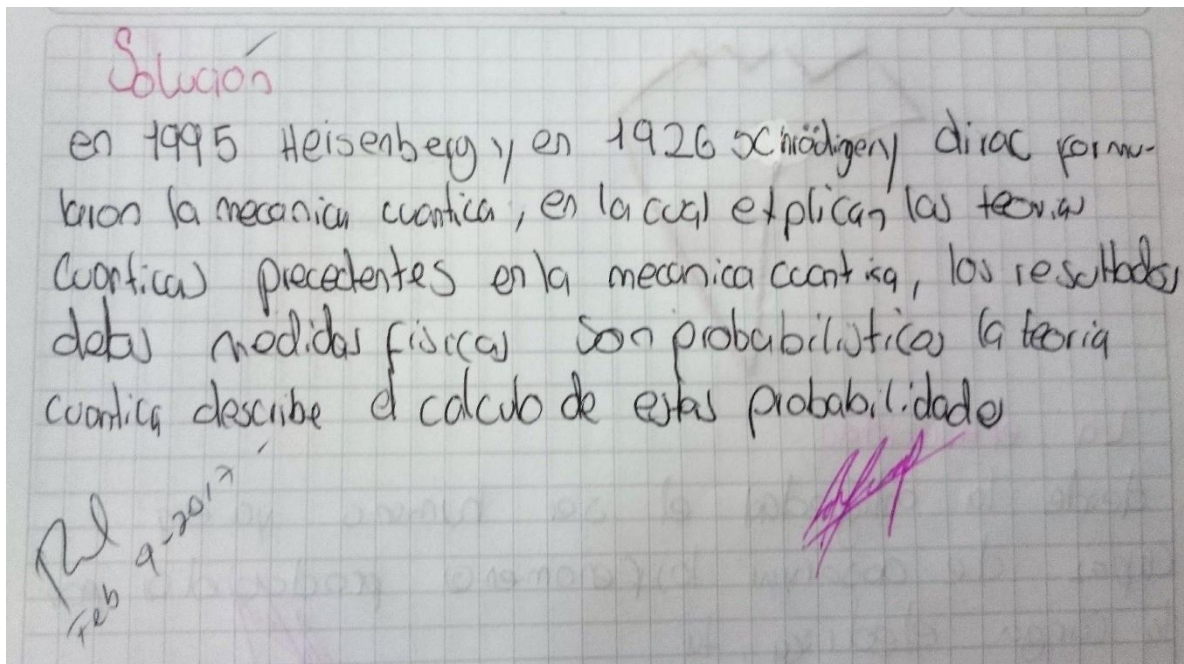 Solución
en 1995 Heisenberg y en 1926 Schrödiger y dirac formu-
laron la mecanica cuantica, en la cual explican las teorias
Cuanticas precedentes en la mecanica cuantica, los resultados
delas medidas fisicas son probabilisticas la teoria
cuantica describe el calculo de estas probabilidades
Feb 9-2017